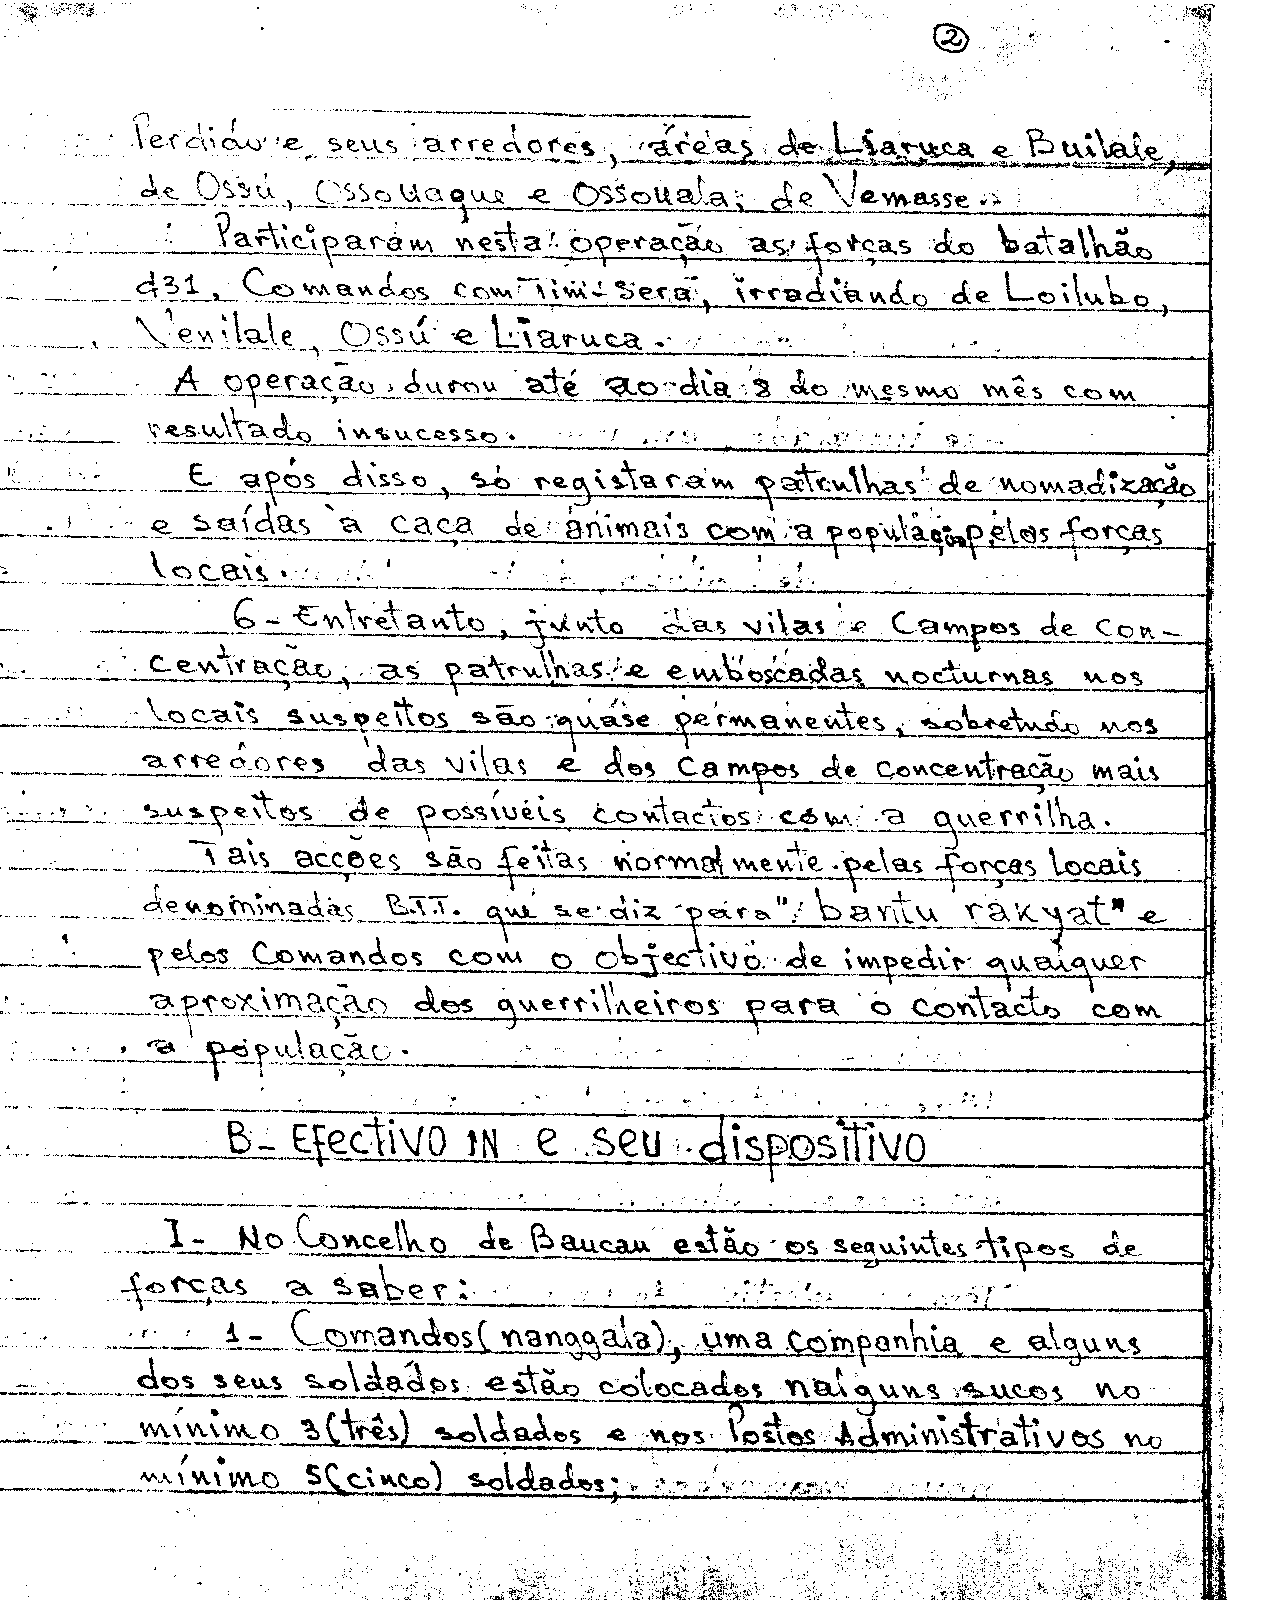 2
Perdidu e seus arredores, áreas de Liaruca e Builale,
de Ossú, Ossouaque e Ossouala; de Vemasse.
Participaram nesta operação as forças do batalhão
431, Comandos com Tim-Sera, irradiando de Loilubo,
Venilale, Ossú e Liaruca.
A operação durou até ao dia 8 do mesmo mês com
resultado insucesso.
E após disso, só registaram patrulhas de nomadização
e saídas à caça de animais com a população pelos forças
locais.
6- Entretanto, junto das vilas e Campos de con-
centração, as patrulhas e emboscadas nocturnas nos
locais suspeitos são quase permanentes, sobretudo nos
arredores das vilas e dos campos de concentração mais
suspeitos de possíveis contactos com a guerrilha.
Tais acções são feitas normalmente pelas forças locais
denominadas B.T.T. que se diz para "bantu rakyat" e
pelos Comandos com o objectivo de impedir qualquer
aproximação dos guerrilheiros para o contacto com
a população.
B- Efectivo IN e seu dispositivo
I- No Concelho de Baucau estão os seguintes tipos de
forças a saber:
1- Comandos (nanggala), uma companhia e alguns
dos seus soldados estão colocados nalguns sucos no
mínimo 3 (três) soldados e nos Postos Administrativos no
mínimo 5 (cinco) soldados;